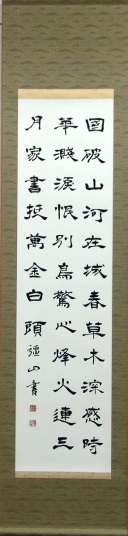 國破山河在城春草木深感時
華濺涙恨別鳥驚心烽火連三
月家書抵萬金白頭
山書